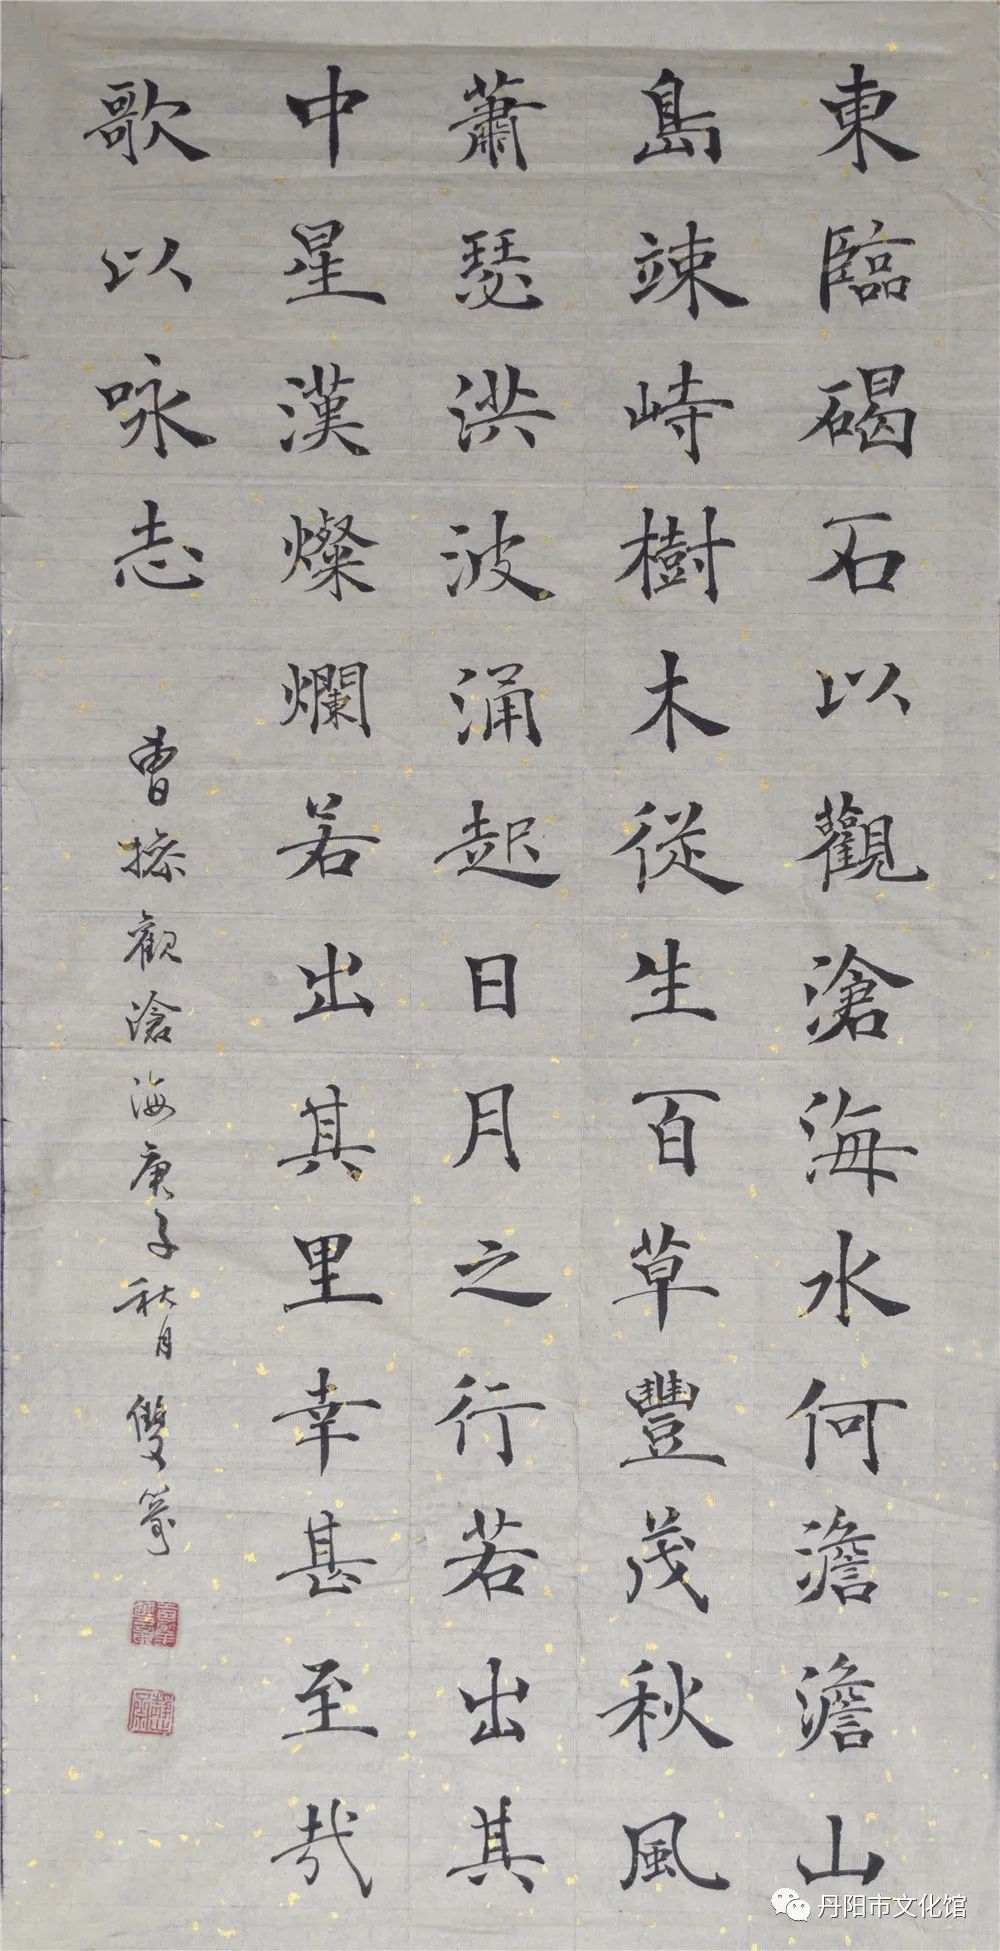 東臨碣石以觀滄海水何澹澹山
島竦峙樹木從生百草豐茂秋風
蕭瑟洪波涌起日月之行若出其
中星漢燦爛若出其里幸甚至哉
歌以咏志
曹操觀滄海庚子秋月雙箏
丹阳市文化馆